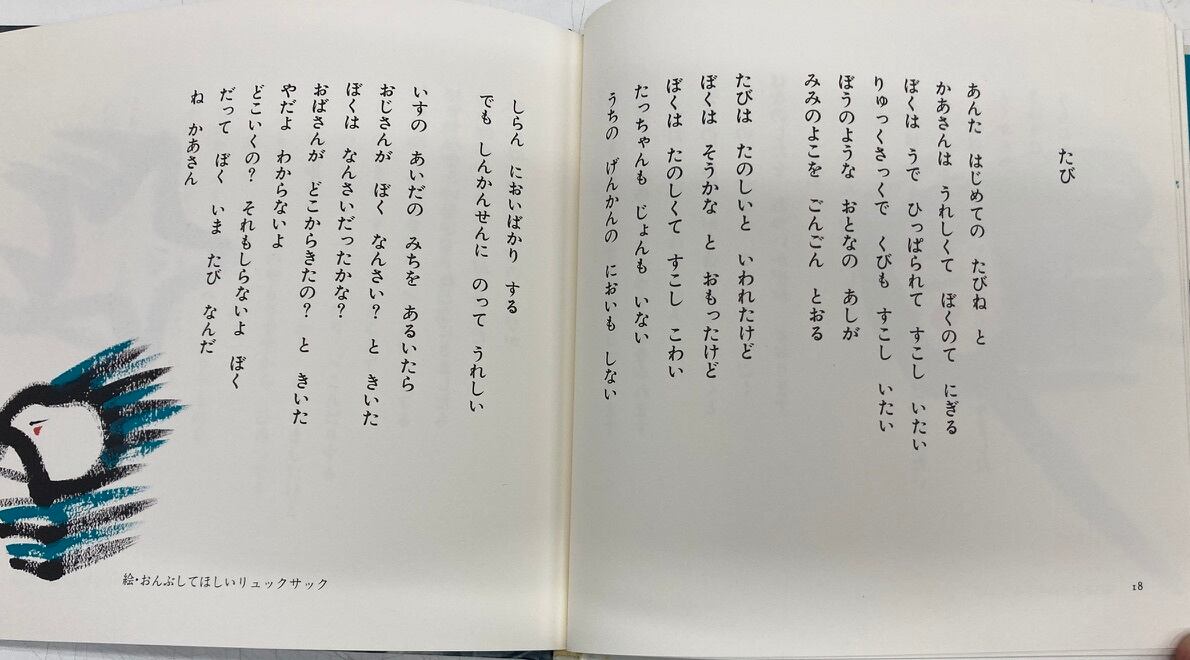 たび
あんた はじめての たびね と
かあさんは うれしくて ぼくのて にぎる
ぼくは うで ひっぱられて すこし いたい
りゅっくさっくで くびも すこし いたい
ぼうのような おとなの あしが
みみのよこを ごんごん とおる
たびは たのしいと いわれたけど
ぼくは そうかな と おもったけど
ぼくは たのしくて すこし こわい
たっちゃんも じょんも いない
うちの げんかんの においも しない
18
しらん においばかり する
でも しんかんせんに のって うれしい
いすの あいだの みちを あるいたら
おじさんが ぼく なんさい? と きいた
ぼくは なんさいだったかな?
おばさんが どこからきたの? と きいた
やだよ わからないよ
どこいくの? それもしらないよ ぼく
だって ぼく いま たび なんだ
ね かあさん
絵・おんぶしてほしいリュックサック